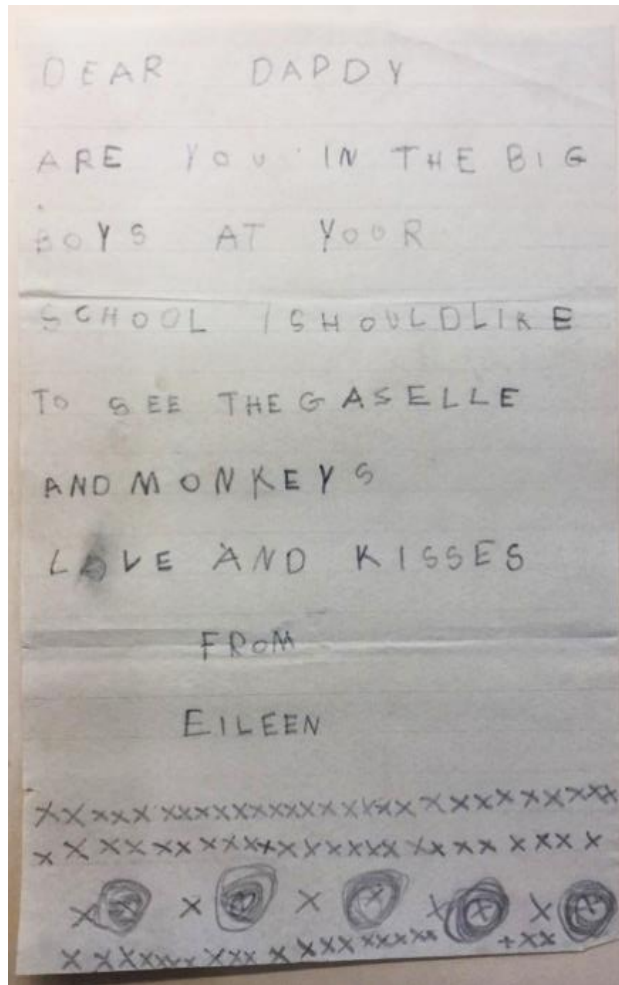 DEAR DADDY
ARE YOU IN THE BIG
BOYS AT YOUR
SCHOOL I SHOULD LIKE
TO SEE THE GASELLE
AND MONKEYS
LOVE AND KISSES
FROM
EILEEN
XXXXXXXXXXXXXXXXXXXXXXXXXXXXX
XXXXXXXXXXXXXXXXXXXXXXXXXXX
X X X X X X X X X X
XXXXXXXXXXXXXXXXXXXX +XX